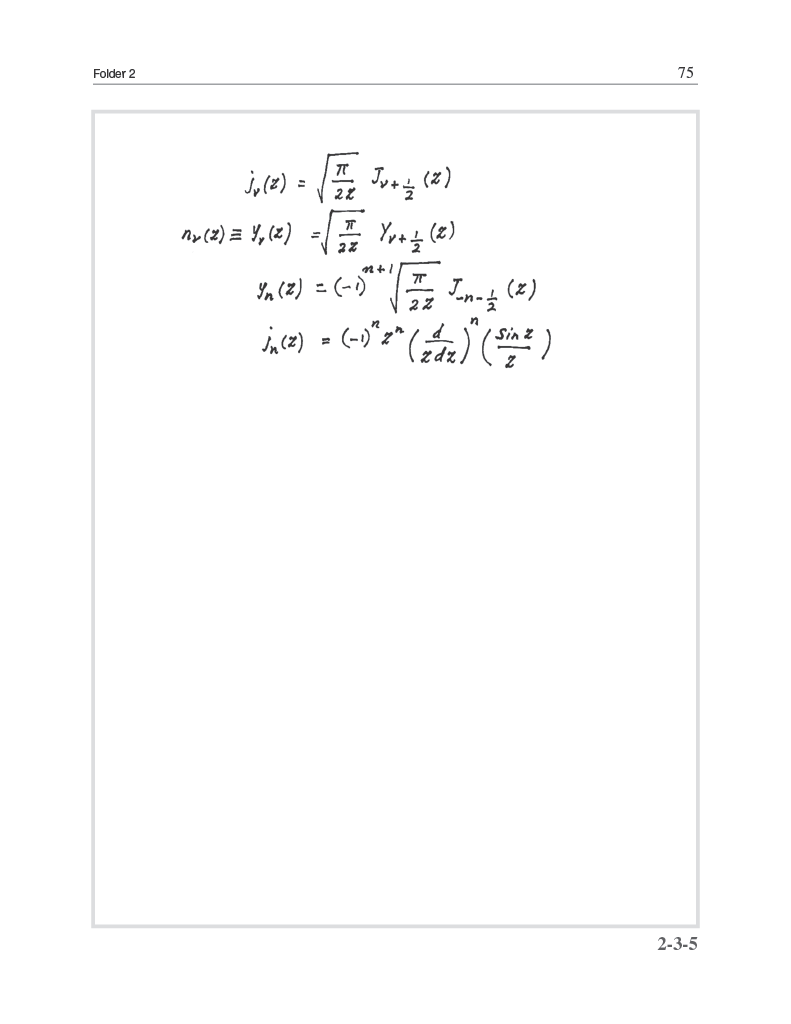 Folder 2 75
j_ν(z) = √(π/2z) J_{ν+1/2}(z)
n_ν(z) ≡ y_ν(z) = √(π/2z) Y_{ν+1/2}(z)
y_n(z) = (-1)^{n+1} √(π/2z) J_{-n-1/2}(z)
j_n(z) = (-1)^n z^n (d/zdz)^n (sin z/z)
2-3-5